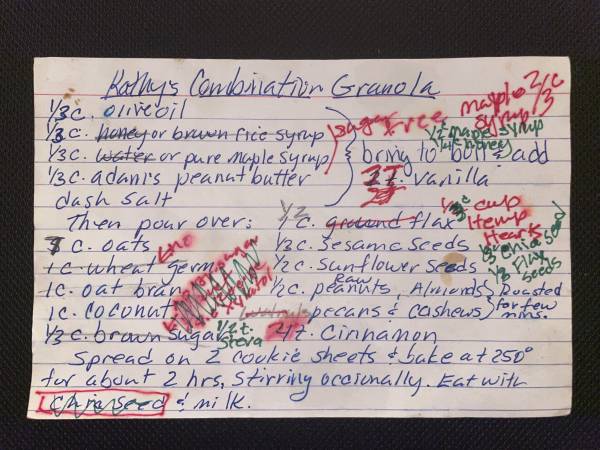 Kathy's Combination Granola
1/3 c. olive oil
1/3 c. honey or brown rice syrup
1/3 c. water or pure maple syrup
1/3 c. adam's peanut butter
dash salt
sugar free
maple syrup 2/3 c
1/2 maple syrup
1/4 c honey
bring to boil & add
2 t. vanilla
Then pour over:
1/2 c. ground flax
1/3 c cup Hemp Hearts
c. oats
1/3 c. sesame seeds
1/3 chia seed
1 c. wheat germ
no
1/2 c. sunflower seeds
1/3 flax seeds
1 c. oat bran
1/2 c. raw peanuts, Almonds
1 c. coconut
pecans & cashews
Roasted for few mins.
1/3 c. brown sugar
1/2 t. Steva
t. Cinnamon
Spread on 2 cookie sheets & bake at 250°
for about 2 hrs, stirring occionally. Eat with
Chia seed & milk.